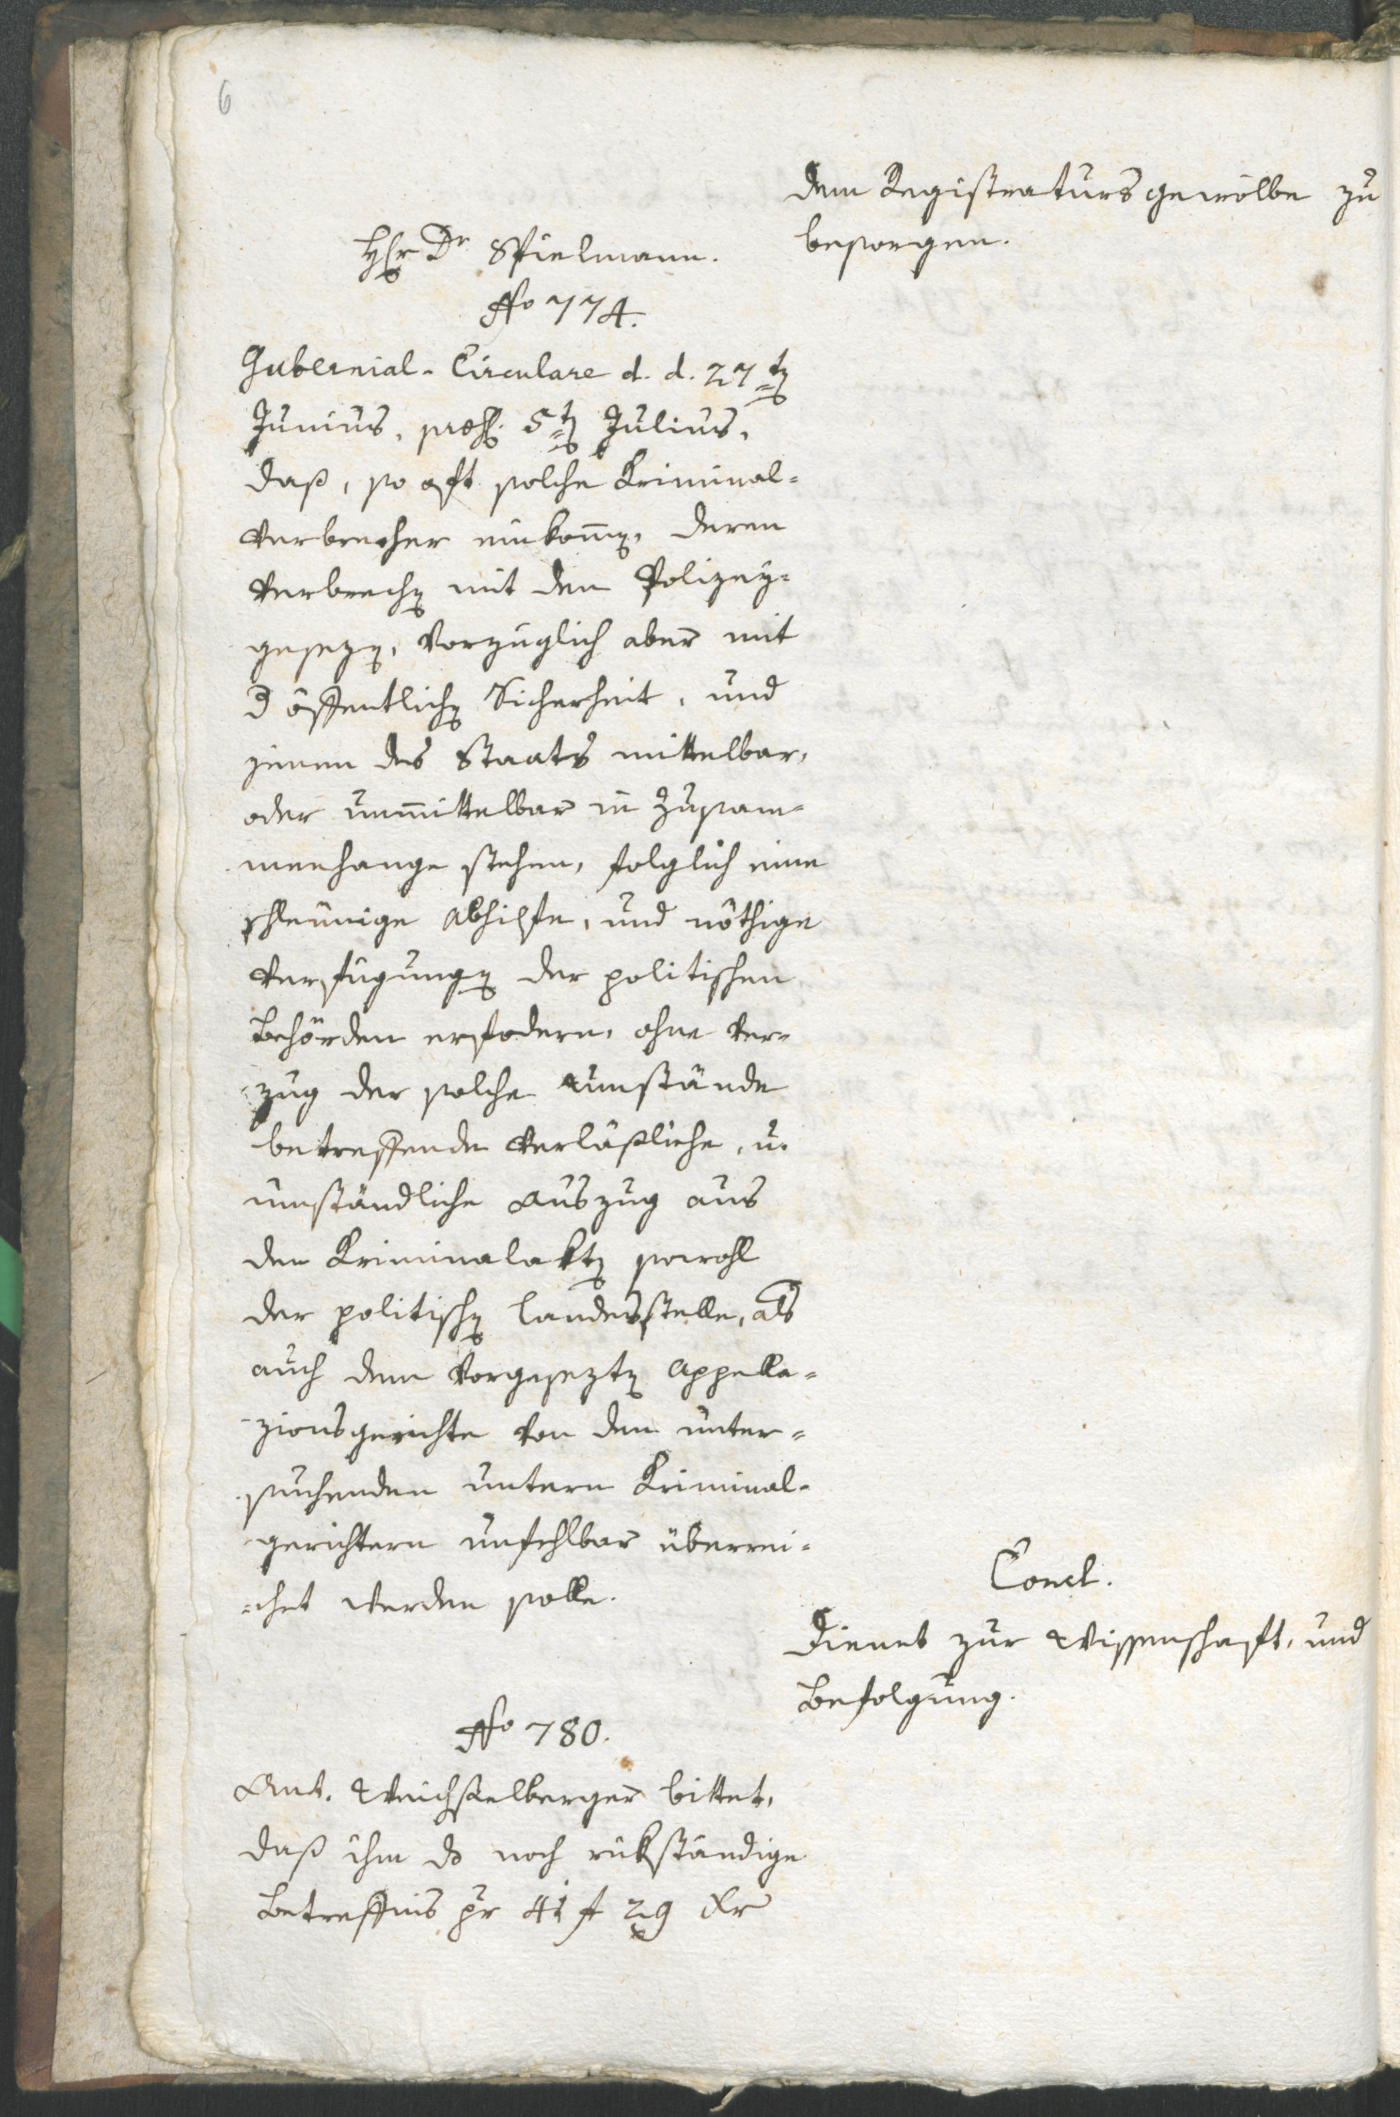 6
dem Registratursgewölbe zu
besorgen.
Hr Dr Spielmann.
No 774.
Gubernial-Circulare d. d. 27ten
Junius, præs. 5ten Julius,
daß, so oft solche Kriminal-
verbrecher einkomen, deren
Verbrechen mit den Polizey-
gesezen, vorzüglich aber mit
der öffentlichen Sicherheit, und
jenen des Staats mittelbar,
oder unmittelbar in Zusam-
menhange stehen, folglich eine
schleünige Abhilfe, und nöthige
Verfügungen der politischen
Behörden erfodern, ohne Ver-
zug der solche Umstände
betreffende verläßliche, u.
umständliche Auszug aus
den Kriminalakten sowohl
der politischen Landesstelle, als
auch dem vorgesezten Appella-
zionsgerichte von den unter-
suchenden untern Kriminal-
gerichtern unfehlbar überrei-
chet werden solle.
Concl.
Dienet zur Wissenschaft, und
Befolgung.
No 780.
Ant. Weichselberger bittet,
daß ihm das noch rükständige
Betreffnis pr 41 f 29 xr